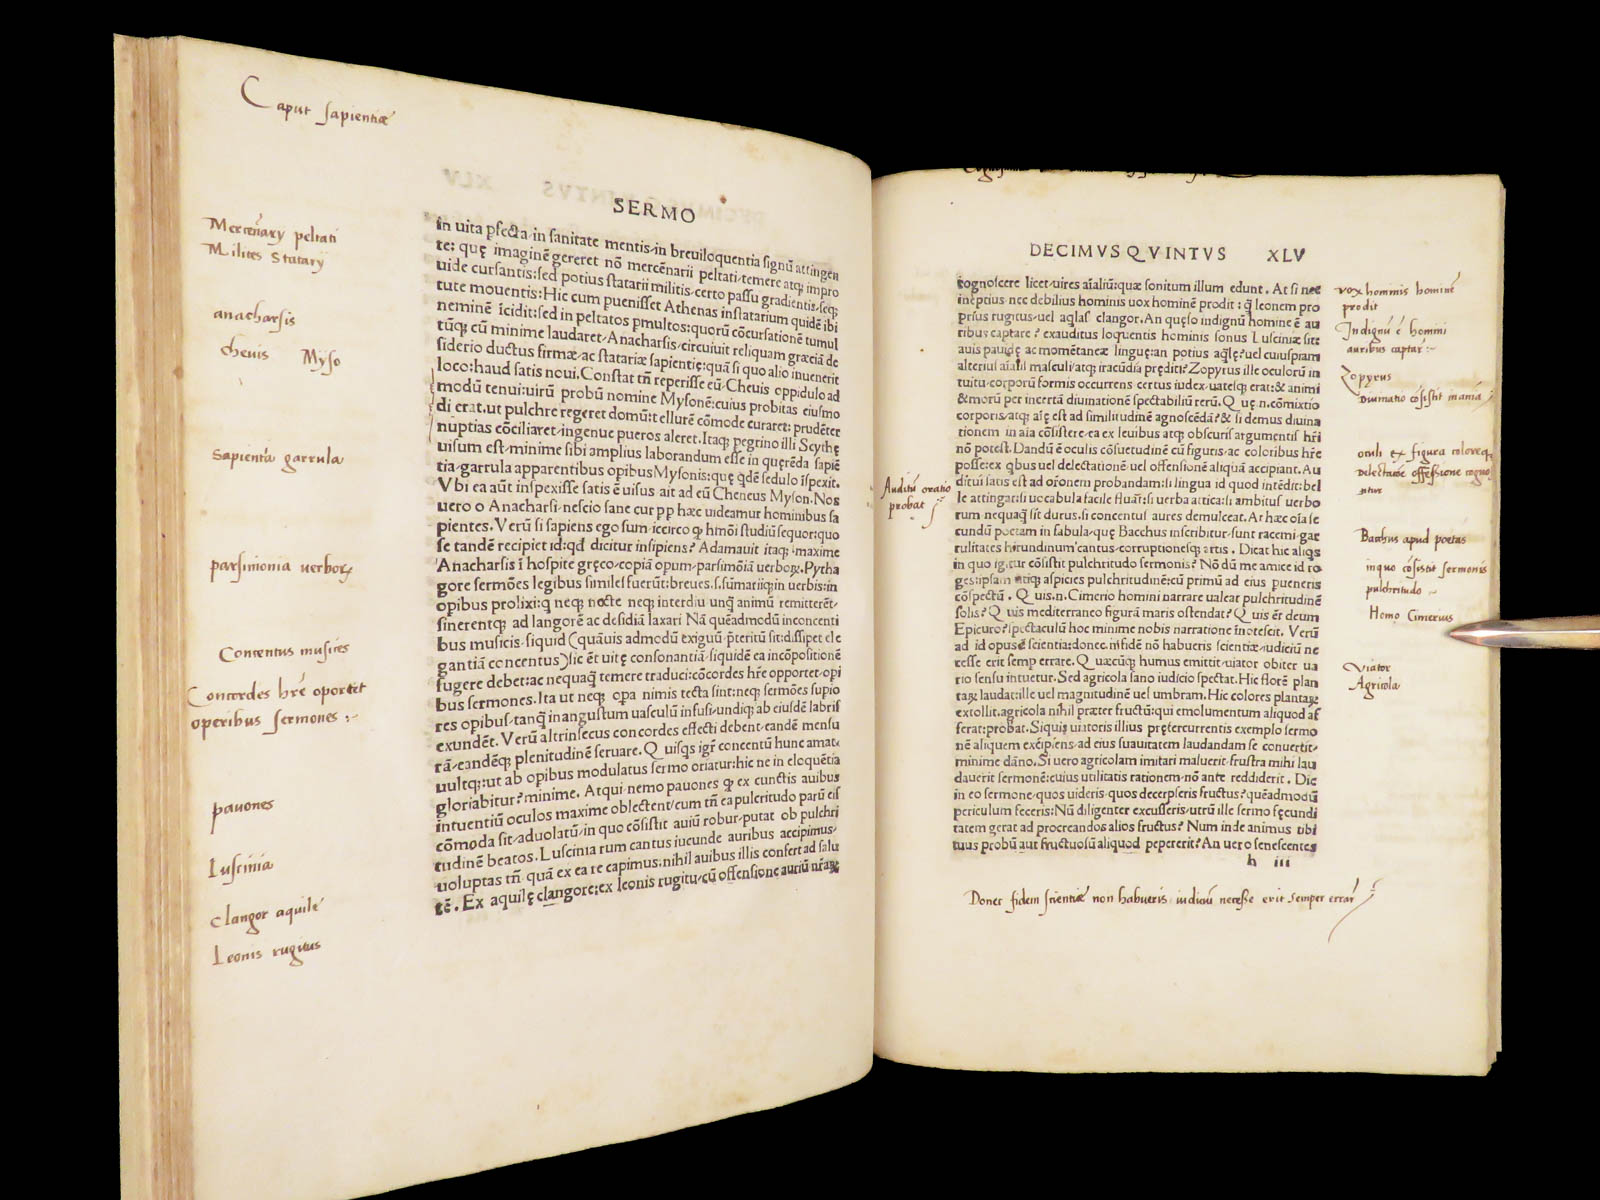 Caput sapientiæ
SERMO
Mercẽnarÿ peltati
Milites Statarÿ
anacharsis
cheuis Myso
Sapientia garrula
parsimonia uerboꝝ
Concentus musices
Concordes hr̃e oportet
operibus sermones :~
pauones
Luscinia
Clangor aquile
Leonis rugitus
in uita pfecta·in sanitate mentis·in breuiloquentia signũ attingen
te: quę imaginẽ gereret nõ mercẽnarii peltati·temere atqꝫ impro
uide cursantis:sed potius statarii militis·certo passu gradientis·seqꝫ
tute mouentis:Hic cum pueniſſet Athenas instatarium quidẽ ibi
neminẽ ĩcidit:sed in peltatos pmultos:quorũ cõcursationẽ tumul
tũqꝫ cũ minime laudaret·Anacharsis·circuiuit reliquam gręciã de
siderio ductus firmæ·ac statariæ sapientię:quã si quo alio inuenerit
loco:haud satis noui. Constat tñ reperisse eũ·Cheuis oppidulo ad
modũ tenui:uirũ probũ nomine Mysonẽ:cuius probitas eiusmo
di erat·ut pulchre regeret domũ:tellurẽ cõmode curaret: prudẽter
nuptias cõciliaret·ingenue pueros aleret.Itaqꝫ pegrino illi Scythę
uisum est·minime sibi amplius laborandum esse in quęrẽda sapiẽ
tia·garrula apparentibus opibus Mysonis:quę qdẽ sedulo ĩspexit.
Vbi ea aũt inspexisse satis ẽ uisus ait ad eũ Cheneus Myson. Nos
uero o Anacharsi·nescio sane cur pp hæc uideamur hominibus sa
pientes. Verũ si sapiens ego sum·icciirco qꝫ hmõi studiũ sequor:quo
se tandẽ recipiet id:qd dicitur insipiens? Adamauit itaqꝫ maxime
Anacharsis ĩ hospite gręco·copiã opum·parsimõiã uerboꝝ. Pytha
gore sermões legibus similes fuerũt:breues.s.sũmariiqꝫ in uerbis:in
opibus prolixi:q neqꝫ nocte neqꝫ interdiu unq̃ animũ remitterẽt·
sinerentqꝫ ad langorẽ ac desidiã laxari Nã quẽadmodũ inconcenti
bus musicis·siquid (quãuis admodũ exiguũ pteritũ sit:dissipet ele
gantiã concentus)sic ẽt uitę consonantiã·siquidẽ ea incõpositionẽ
fugere debet:ac nequaq̃ temere traduci:cõcordes hr̃e opportet·opi
bus sermones. Ita ut neqꝫ opa nimis tecta sint:neqꝫ sermões supio
res opibus·tanq̃ inangustum uasculũ infusi·undiqꝫ ab eiusdẽ labris
exundẽt. Verũ altrinsecus concordes effecti debent·eandẽ mensu
rã·eandẽqꝫ plenitudinẽ seruare. Q uisqs igr̃ concentũ hunc amat·
uultqꝫ:ut ab opibus modulatus sermo oriatur:hic ne in eloquẽtia
gloriabitur? minime. Atqui nemo pauones qꝫ ex cunctis auibus
intuentiũ oculos maxime oblectent·cum tñ ea pulcritudo parũ eis
cõmoda sit·aduolatũ·in quo cõsistit auiũ robur·putat ob pulchri
tudinẽ beatos. Luscinia rum cantus iucunde auribus accipimus·
uoluptas tñ quã ex ea re capimus:nihil auibus illis confert ad salu
tẽ. Ex aquilę clangore:ex leonis rugitu·cũ offensione auriũ nr̃aꝝ
DECIMVS Q VINTVS XLV
cognoscere licet·uires aĩaliũ:quæ sonitum illum edunt. At si nec
ineptius·nec debilius hominis uox hominẽ prodit : q̃ leonem pro
prius rugitus·uel aqlas clangor. An quęso indignũ homine ẽ au
ribus captare ? exauditus loquentis hominis sonus Lusciniæ sit:
auis pauidę ac momẽtaneæ linguę:an potius aqlę? uel cuiuspiam
alterius aĩalis masculi·atqꝫ iracũdia pręditi? Zopyrus ille oculorũ in
tuitu·corporũ formis occurrens·certus iudex·uatesqꝫ erat:& animi
& morũ per incertã diuinationẽ spectabiliũ rerũ. Q uę.n.cõmixtio
corporis·atqꝫ aĩę est ad similitudinẽ agnoscẽdã? & si demus diuina
tionem in aĩa cõsistere·ea ex leuibus atqꝫ obscuris argumentis hr̃i
nõ potest. Dandũ ẽ oculis cõsuetudinẽ cũ figuris·ac coloribus hr̃e
posse:ex qbus uel delectationẽ·uel offensionẽ aliquã accipiant. Au
ditui satis est ad or̃onem probandam:si lingua id quod intẽdit:bel
le attingar:si uocabula facile fluãt:si uerba attica:si ambitus uerbo
rum nequaq̃ sit durus:si concentus aures demulceat. At hæc oĩa se
cundũ poetam in fabula·quę Bacchus inscribitur·sunt racemi·gar
rulitates hirundinum·cantus·corruptionesqꝫ artis . Dicat hic aliqs
in quo igitur cõsistit pulchritudo sermonis? Nõ dũ me amice id ro
ges:ipsam etiqꝫ aspicies pulchritudinẽ:cũ primũ ad eius pueneris
cõspectũ . Q uis.n. Cimerio homini narrare ualeat pulchritudinẽ
solis? Q uis mediterraneo figurã maris ostendat? Q uis ẽt deum
Epicuro? spectaculũ hoc minime nobis narratione ĩnotescit. Verũ
ad id opus ẽ scientia:donec.n.fidẽ nõ habueris scientiæ·iudiciũ ne
cesse erit semp errate. Q uæcũqꝫ humus emittit·uiator obiter ua
rio sensu intuetur. Sed agricola sano iudicio spectat. Hic florẽ plan
taꝝ laudat:ille uel magnitudinẽ uel umbram. Hic colores plantaꝝ
extollit·agricola nihil præter fructũ:qui emolumentum aliquod af
ferat:probat. Siquis uiatoris illius prętercurrentis exemplo sermo
nẽ aliquem excipiens·ad eius suauitatem laudandam se conuertit·
minime dãno. Si uero agricolam imitari maluerit·frustra mihi lau
dauerit sermonẽ:cuius utilitatis rationem·nõ ante reddiderit . Dic
in eo sermone·quos uideris·quos decerpseris fructus? quẽadmodũ
periculum feceris:Nũ diligenter excusseris·utrũ ille sermo fęcundi
tatem gerat ad procreandos alios fructus? Num inde animus tibi
tuus probũ aut fructuosũ aliquod pepererit? An uero senescentes
h iii
Auditui oratio
probat
vox hominis hominẽ
prodit
Indignũ ẽ homini
auribus captar̃ :~
Zopyrus
Diuinatio cõsistit in aniã
oculi ex figura coloreqꝫ
delectatiõe offessione cogno
ntur
Bacchus apud poetas
in quo cõsistit sermonis
pulchritudo ~
Homo Cimerius
Viator
Agricola
Donec fidem scientiæ non habueris iudiciũ necesse erit semper errar̃